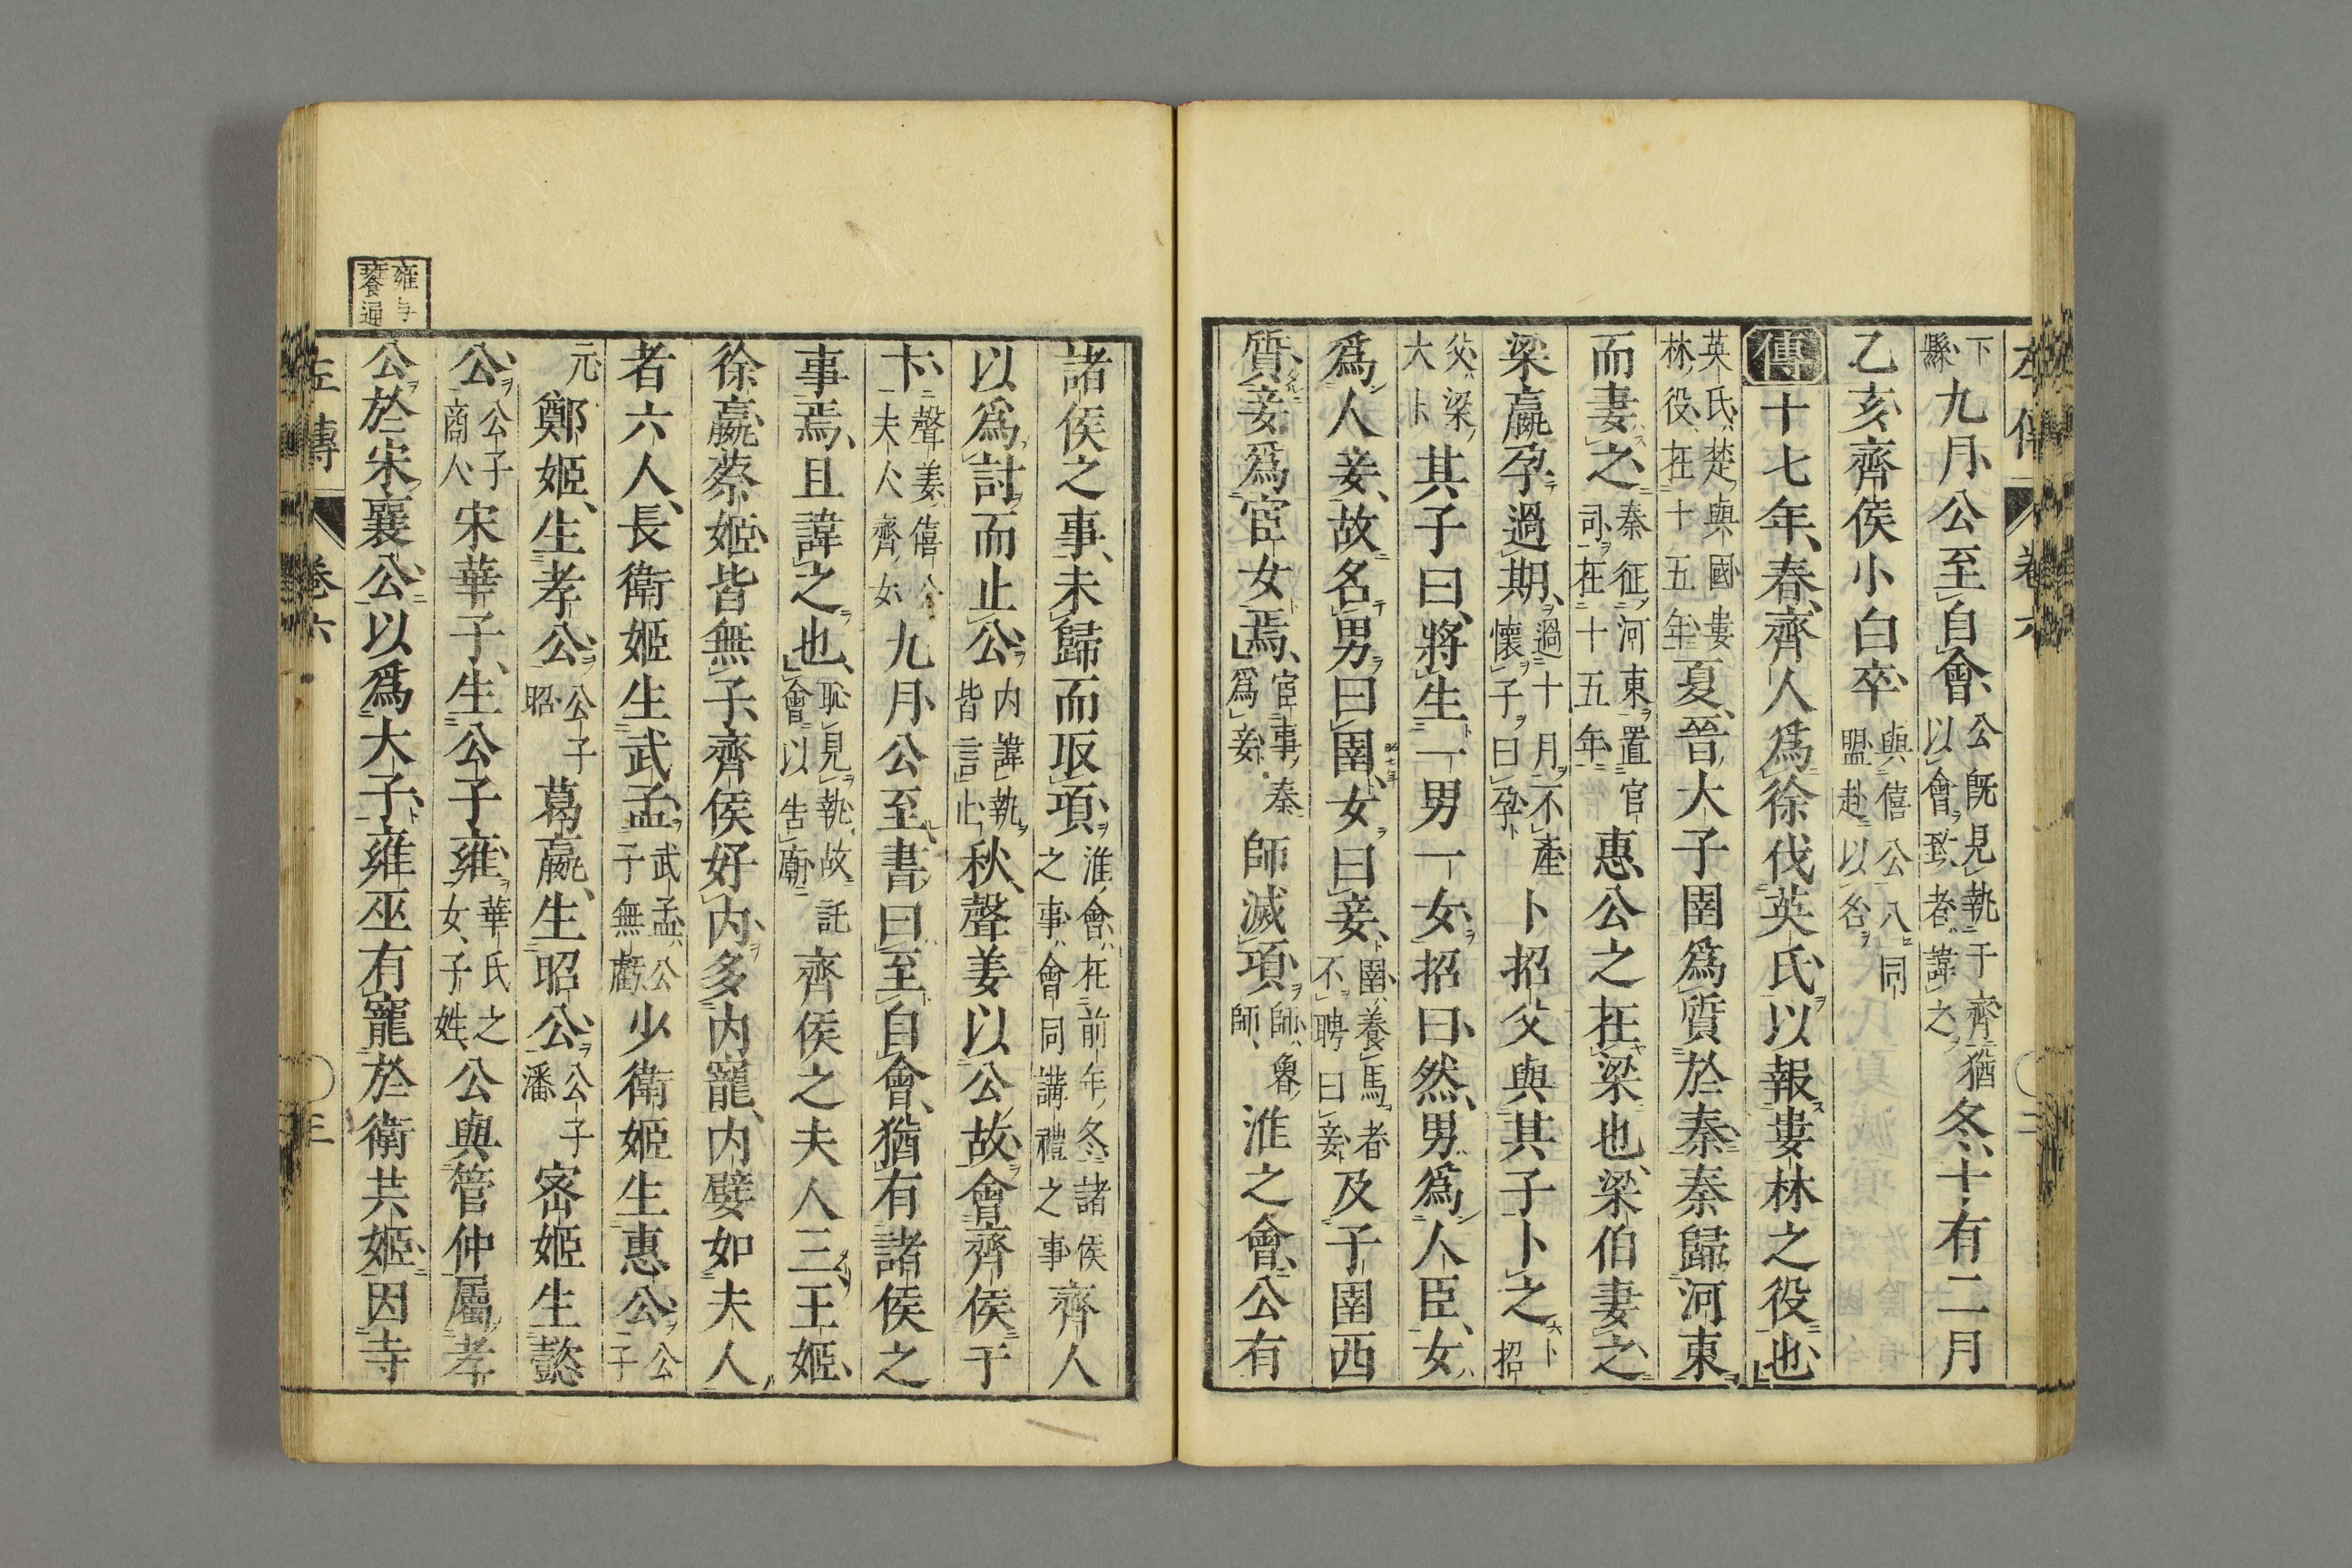 左傳 卷六 二
下縣九月公至自會公既見執于齊猶以會致者諱之冬十有二月
乙亥齊侯小白卒與僖公八同盟赴以名
傳十七年春齊人爲徐伐英氏以報婁林之役也
英氏楚與國婁林役在十五年夏晉大子圉爲質於秦秦歸河東
而妻之秦征河東置官司在十五年惠公之在梁也梁伯妻之
梁嬴孕過期過十月不產懷子曰孕卜招父與其子卜之招
父梁大卜其子曰將生一男一女招曰然男爲人臣女
爲人妾故名男曰圉女曰妾圉養馬者不聘曰妾及子圉西
質妾爲宦女焉宦事秦爲妾師滅項師魯師淮之會公有
諸侯之事未歸而取項淮會在前年冬諸侯之事會同講禮之事齊人
以爲討而止公内諱執皆言止秋聲姜以公故會齊侯于
卞聲姜僖公夫人齊女九月公至書曰至自會猶有諸侯之
事焉且諱之也恥見執故託會以告廟齊侯之夫人三王姬
徐嬴蔡姬皆無子齊侯好内多内寵内嬖如夫人
者六人長衛姬生武孟武孟公子無虧少衛姬生惠公公子
元鄭姬生孝公公子昭葛嬴生昭公公子潘密姬生懿
公公子商人宋華子生公子雍華氏之女子姓公與管仲屬孝
公於宋襄公以爲大子雍巫有寵於衛共姬因寺
雍与饔通
左傳 卷六 三